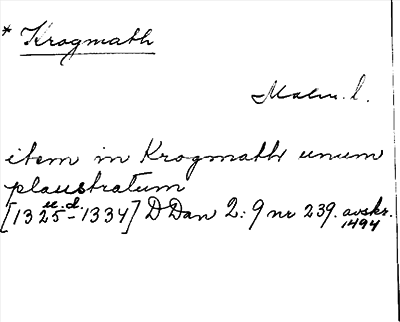 * Krogmath
Malm. l.
item in Krogmath unum
plaustratum
[1325 u.d. - 1334] DDan 2:9 nr 239. avskr.
1494